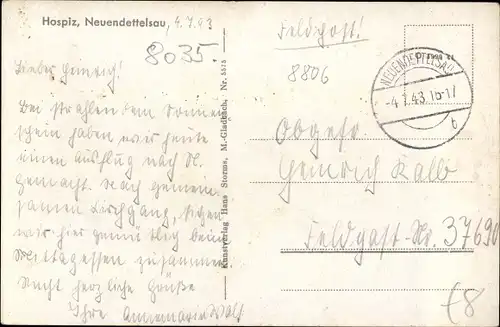 Hospiz, Neuendettelsau, 4.7.43
8035.
Lieber Heinrich!
Bei strahlendem Sonnen
schein haben wir heute
einen Ausflug nach N.
gemacht. Nach gemein
samen Kirchgang, sitzen
wir hier gemütlich beim
Mittagessen zusammen
Recht herzliche Grüße
Ihre Annemarie Wolf
Kunstverlag Hans Storms, M.-Gladbach, Nr.
Feldpost!
8806
NEUENDETTELSAU
-4.7.43.16-17
b
Obgefr
Heinrich Kalb
Feldpost-Nr. 37690
£8